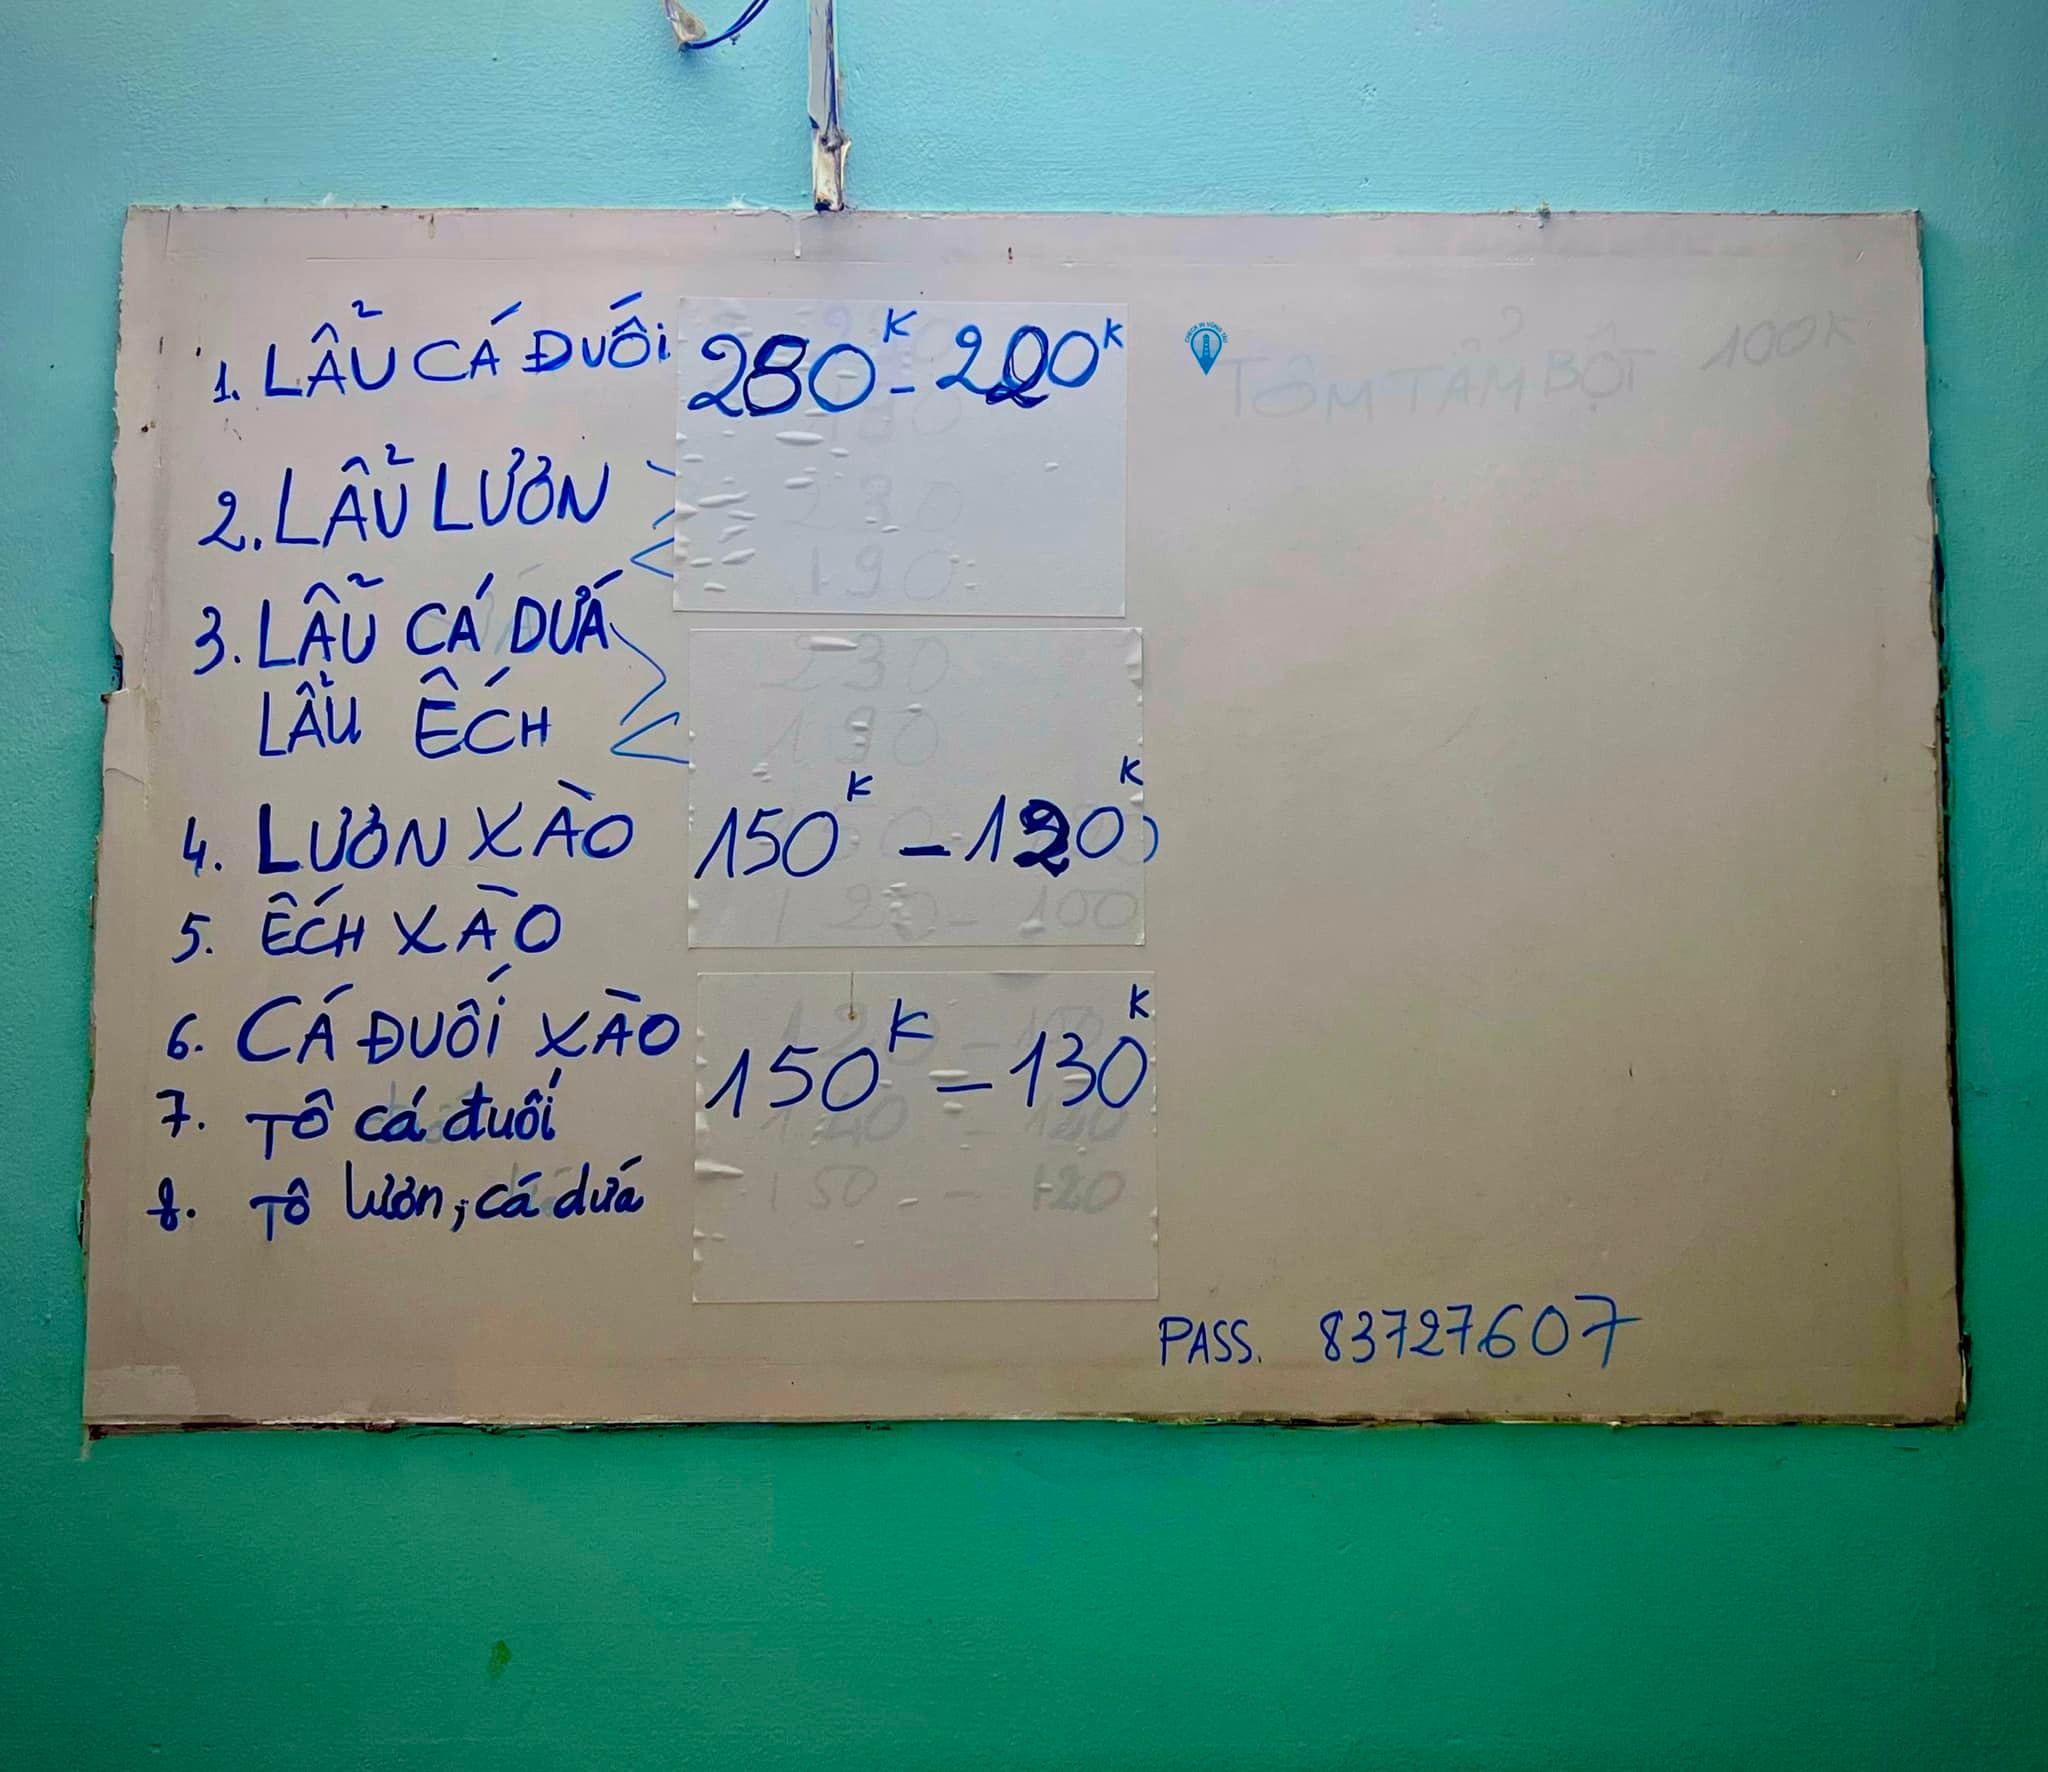 1. LẨU CÁ ĐUỐI 250K - 220K
TÔM TẨM BỘT 100K
2. LẨU LƯƠN
3. LẨU CÁ DỨA
LẨU ẾCH
4. LƯƠN XÀO 150K - 120K
5. ẾCH XÀO
6. CÁ ĐUỐI XÀO 150K - 130K
7. TÔ cá đuối
8. TÔ lươn, cá dứa
PASS. 83727607